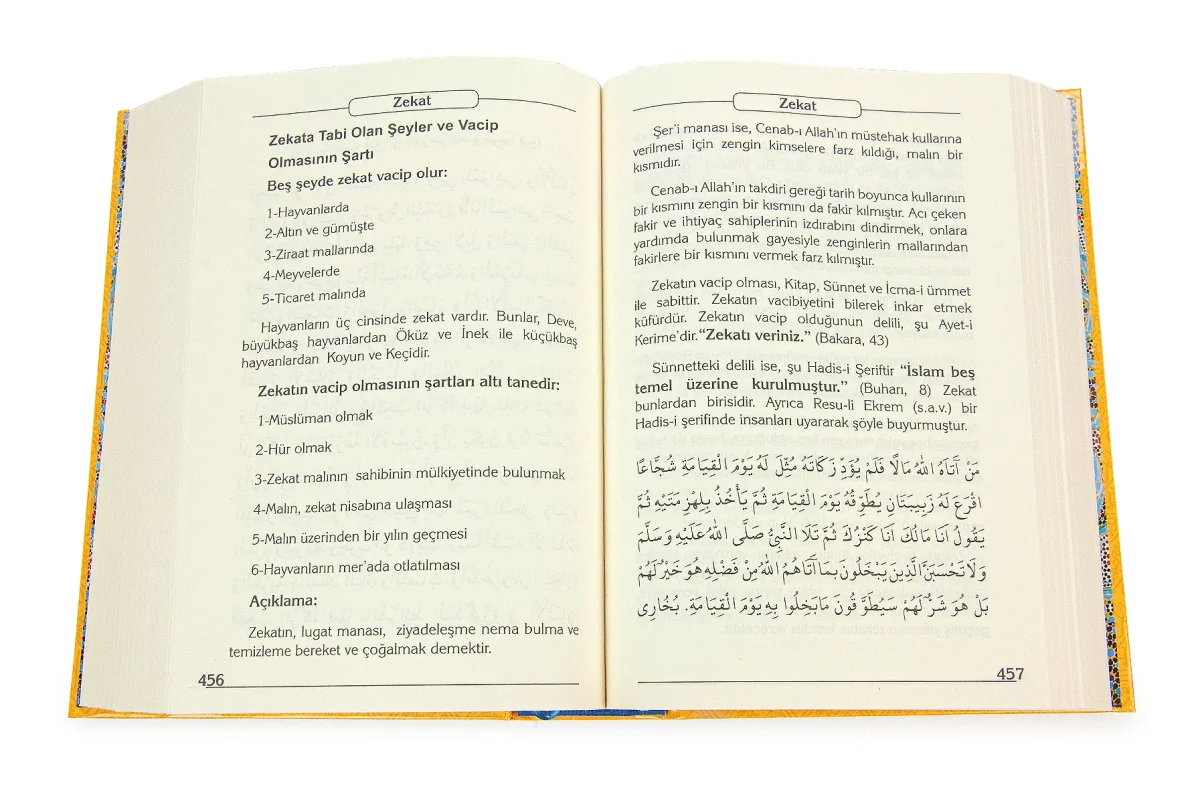 Zekat
Zekata Tabi Olan Şeyler ve Vacip
Olmasının Şartı
Beş şeyde zekat vacip olur:
1-Hayvanlarda
2-Altın ve gümüşte
3-Ziraat mallarında
4-Meyvelerde
5-Ticaret malında
Hayvanların üç cinsinde zekat vardır. Bunlar, Deve,
büyükbaş hayvanlardan Öküz ve İnek ile küçükbaş
hayvanlardan Koyun ve Keçidir.
Zekatın vacip olmasının şartları altı tanedir:
1-Müslüman olmak
2-Hür olmak
3-Zekat malının sahibinin mülkiyetinde bulunmak
4-Malın, zekat nisabına ulaşması
5-Malın üzerinden bir yılın geçmesi
6-Hayvanların mer'ada otlatılması
Açıklama:
Zekatın, lugat manası, ziyadeleşme nema bulma ve
temizleme bereket ve çoğalmak demektir.
456
Zekat
Şer'i manası ise, Cenab-ı Allah'ın müstehak kullarına
verilmesi için zengin kimselere farz kıldığı, malın bir
kısmıdır.
Cenab-ı Allah'ın takdiri gereği tarih boyunca kullarının
bir kısmını zengin bir kısmını da fakir kılmıştır. Acı çeken
fakir ve ihtiyaç sahiplerinin ızdırabını dindirmek, onlara
yardımda bulunmak gayesiyle zenginlerin mallarından
fakirlere bir kısmını vermek farz kılmıştır.
Zekatın vacip olması, Kitap, Sünnet ve İcma-i ümmet
ile sabittir. Zekatın vacibiyetini bilerek inkar etmek
küfürdür. Zekatın vacip olduğunun delili, şu Ayet-i
Kerime'dir. “Zekatı veriniz.” (Bakara, 43)
Sünnetteki delili ise, şu Hadis-i Şeriftir “İslam beş
temel üzerine kurulmuştur.” (Buharı, 8) Zekat
bunlardan birisidir. Ayrıca Resu-li Ekrem (s.a.v.) bir
Hadis-i şerifinde insanları uyararak şöyle buyurmuştur.
مَنْ آتَاهُ اللهُ مَالًا فَلَمْ يُؤَدِّ زَكَاتَهُ مُثِّلَ لَهُ يَوْمَ الْقِيَامَةِ شُجَّاعًا
اقْرَعَ لَهُ زَبِيبَتَانِ يُطَوَّقُهُ يَوْمَ الْقِيَامَةِ ثُمَّ يَأْخُذُ بِلِهْزِمَتَيْهِ ثُمَّ
يَقُولُ اَنَا مَالُكَ اَنَا كَنْزُكَ ثُمَّ تَلَا النَّبِيُّ صَلَّى اللهُ عَلَيْهِ وَسَلَّمَ
وَلَا تَحْسَبَنَّ الَّذِينَ يَبْخَلُونَ بِمَا آتَاهُمُ اللهُ مِنْ فَضْلِهِ هُوَ خَيْرٌ لَهُمْ
بَلْ هُوَ شَرٌّ لَهُمْ سَيُطَوَّقُونَ مَا بَخِلُوا بِهِ يَوْمَ الْقِيَامَةِ. بُخَارِى
457